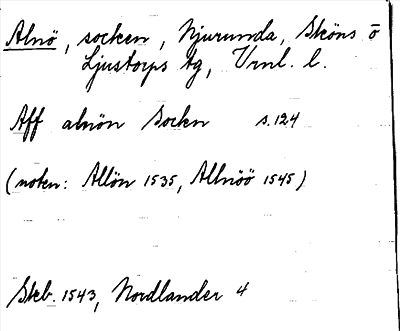 Alnö, socken, Njurunda, Sköns o
Ljustorps tg, Vrnl. l.
Aff alnön Sockn s. 124
(noten: Allön 1535, Allnöö 1545)
Skb. 1543, Nordlander 4